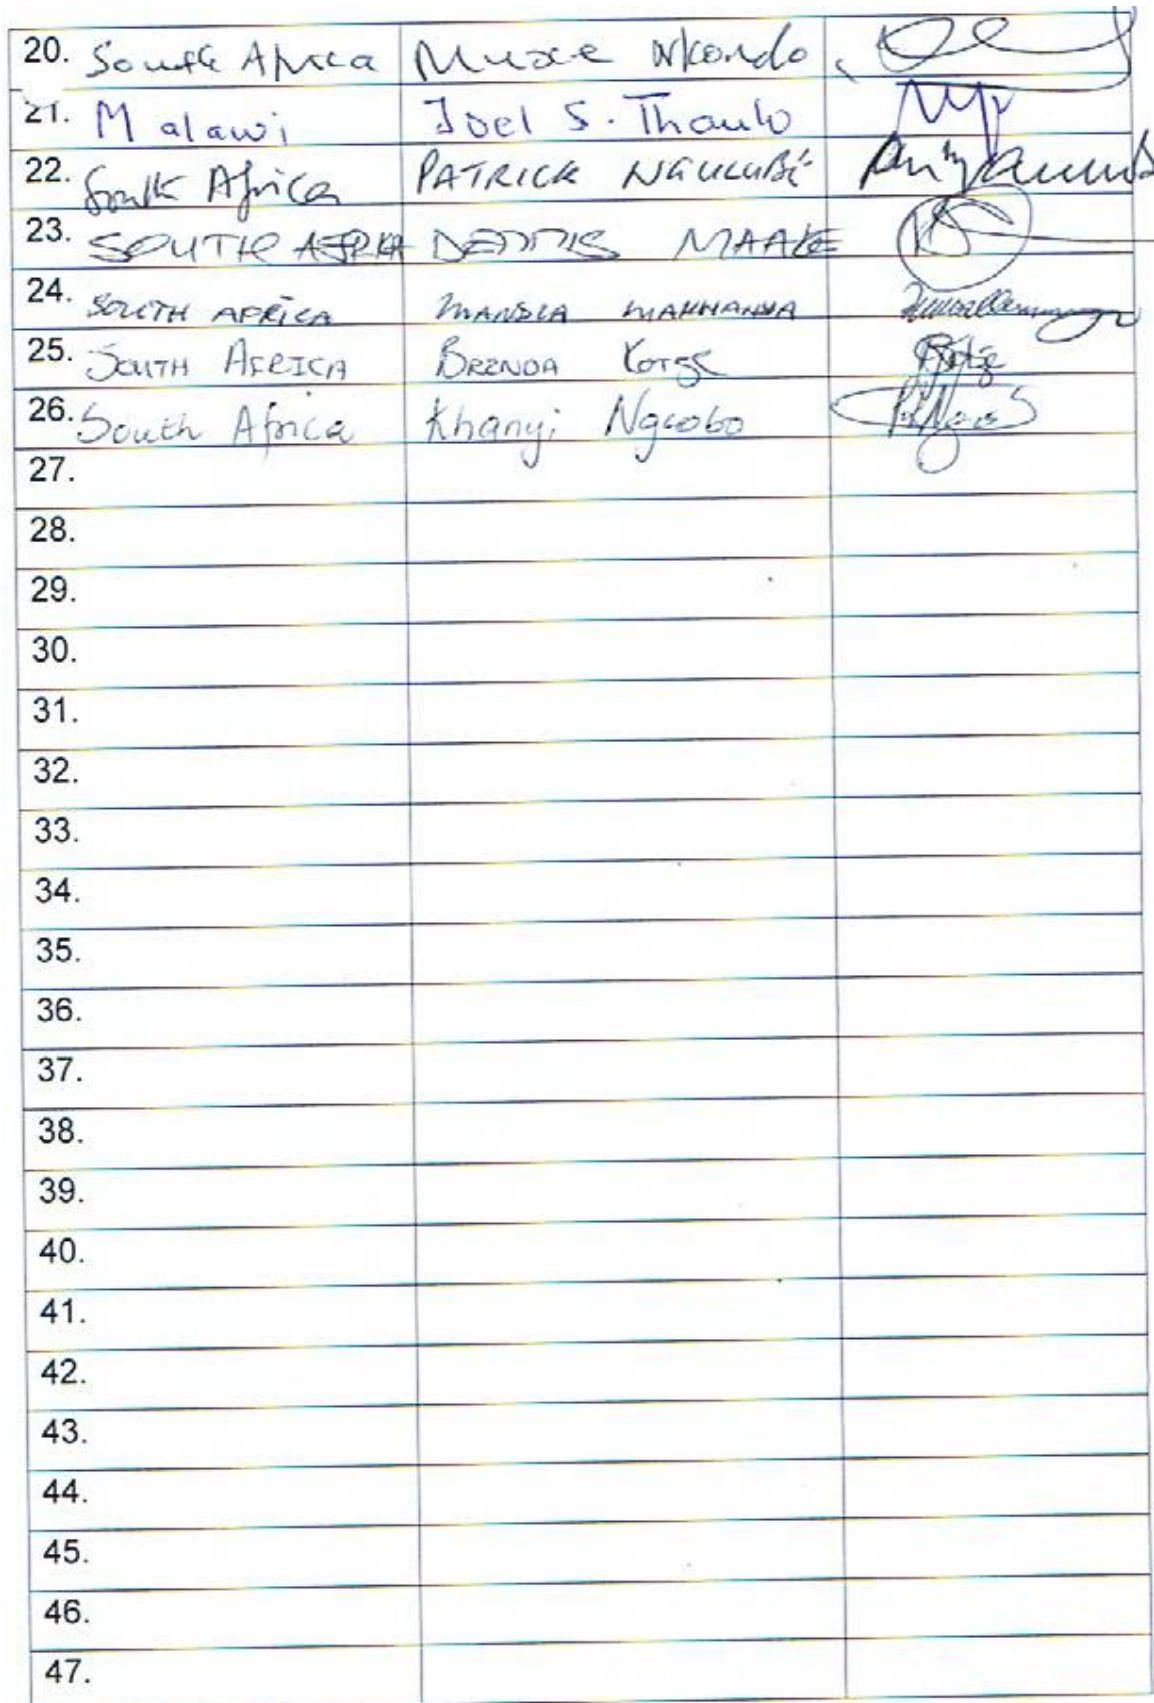 20. South Africa Muxe Nkondo
21. Malawi Joel S. Thaulo
22. South Africa PATRICK NGULUBÉ
23. SOUTH AFRIKA DENNIS MAAKE
24. SOUTH AFRICA MANDLA MAKHANYA
25. SOUTH AFRICA BRENDA KOTZE
26. South Africa Khanyi Ngcobo
27.
28.
29.
30.
31.
32.
33.
34.
35.
36.
37.
38.
39.
40.
41.
42.
43.
44.
45.
46.
47.